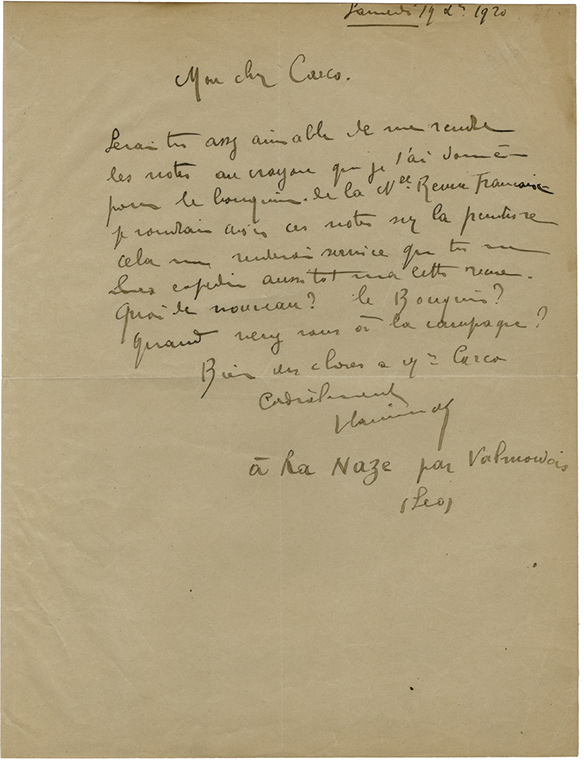 Samedi 19 1920
Mon cher Carco.
Serais tu assez aimable de me rendre
les notes au crayon que je t'ai donné
pour le bouquin de la Nelle Revue Francaise
je voudrais avoir ces notes sur la peinture
cela me rendrait service que tu me
les expédier aussitot cette
Quoi de nouveau? le Bouquin?
Quand venez vous à la campagne?
Bien des choses a Mme Carco
Cordialement
Vlaminck
à La Naze par Valmondois
(Seo)